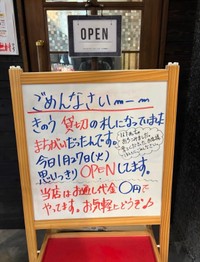 OPEN
ごめんなさいm－m
きのう 貸し切 の札になっていますは
まちがいだったんです。
今日1月27日(火)
思いっきりOPENします。
当店はお通し代金〇円で
やってます。お気軽にどうぞ